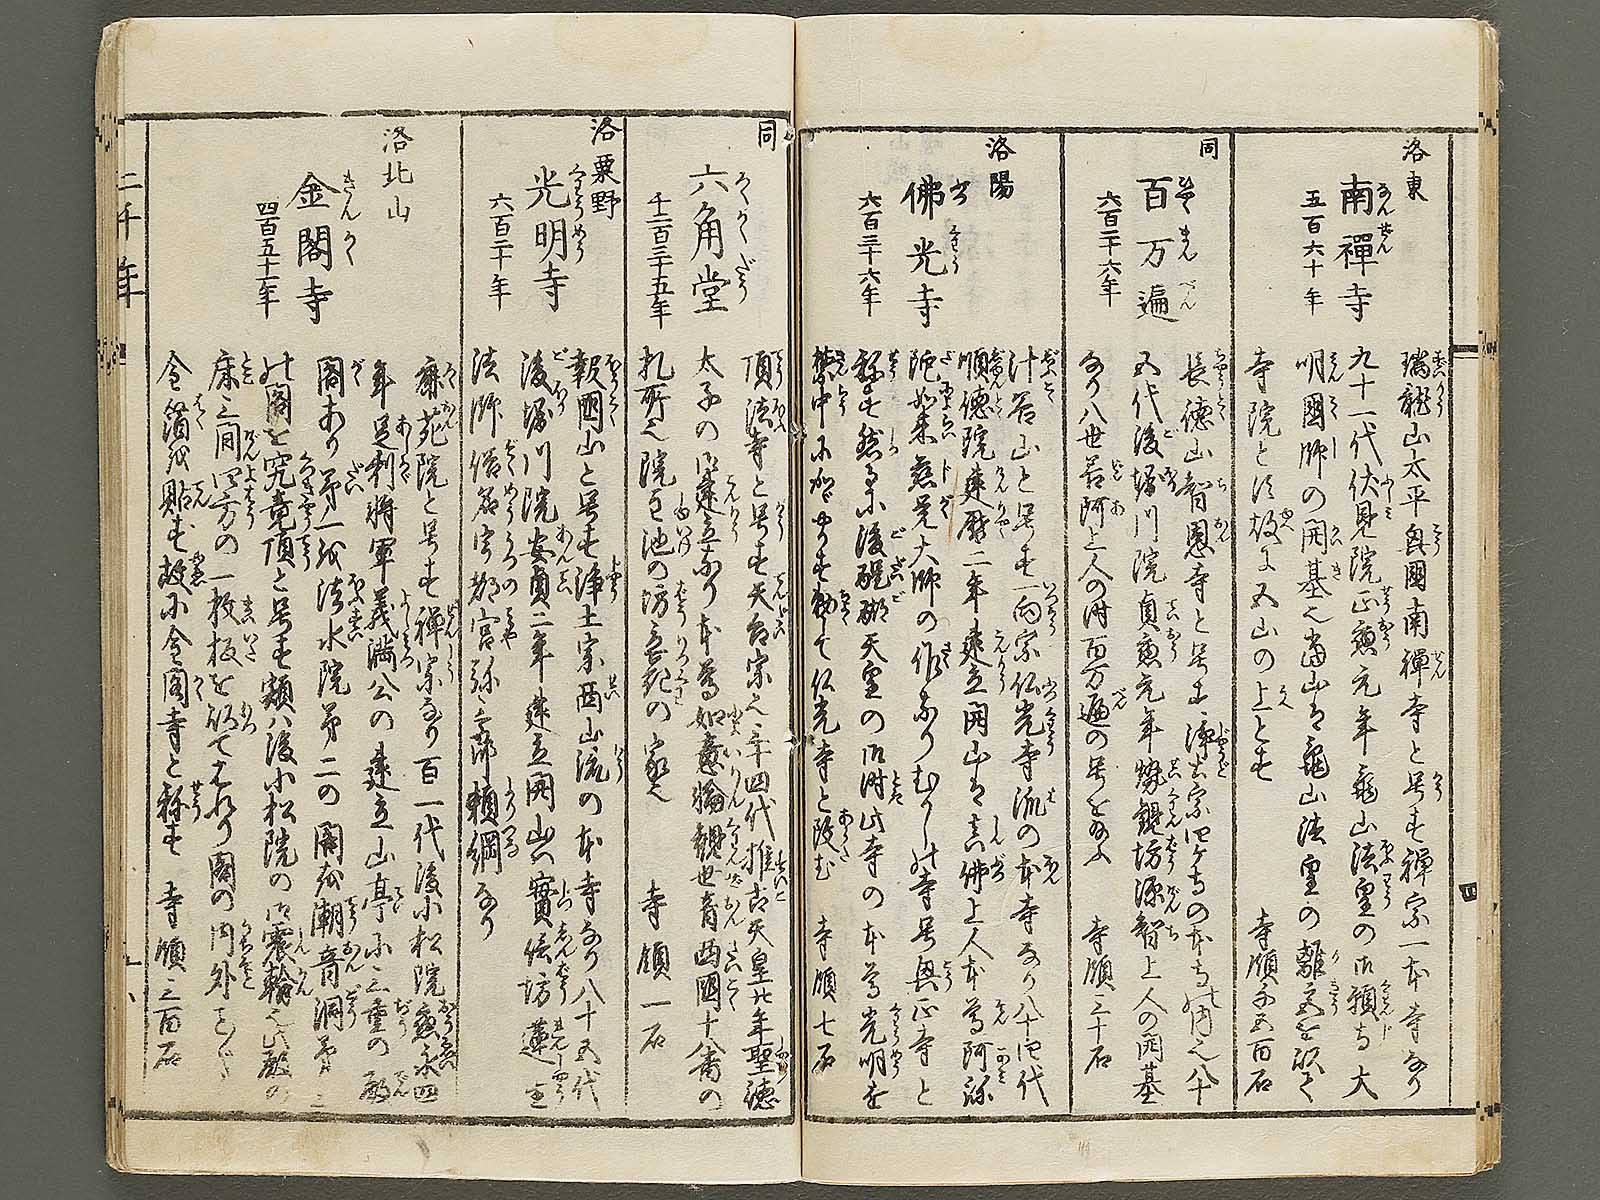 洛東
南禪寺
なんぜん
五百六十年
瑞龍山太平興國南禪寺と号す禅宗一本寺なり
九十一代伏見院正應元年亀山法皇の御願にて大
明國師の開基也當山は亀山法皇の離宮を改て
寺院とす故に五山の上とす
寺領 百石
同
百万遍
ひやくまんべん
六百二十六年
長徳山智恩寺と号す浄土宗四ケ寺の本寺の内也八十
五代後堀川院貞應元年勢観坊源智上人の開基
なり八世善阿上人の時百万遍の号を給ふ
寺領三十石
洛陽
佛光寺
ぶつくわう
六百三十六年
汁谷山と号す一向宗仏光寺流の本寺なり八十四代
順徳院建暦二年建立開山は真佛上人本尊阿弥
陀如来慈覚大師の作なりむかしハ寺号興正寺と
称す然るに後醍醐天皇の御時此寺の本尊光明を
禁中にかゞやかす勅して仏光寺と改む
寺領七石
同
六角堂
ろくかくだう
千二百三十五年
頂法寺と号す天台宗也三十四代推古天皇廿年聖徳
太子の御建立なり本尊如意輪観世音西国十八番の
札所也院主池の坊立花の家也
寺領一石
洛粟野
光明寺
くわうめう
六百二十年
報国山と号す浄土宗西山流の本寺なり八十五代
後堀川院安貞二年建立開山ハ實信坊蓮生
法師俗名宇都宮弥三郎頼綱なり
洛北山
金閣寺
きんかく
四百五十年
鹿苑院と号す禅宗なり百一代後小松院應永四
年足利将軍義満公の建立山亭に三重の殿
閣あり第一を法水院第二の閣を潮音洞第三
の閣を究竟頂と号す額ハ後小松院の御宸翰也此殿の
床三間四方の一枚板を以て是を作り閣の内外こと〴〵
金箔を貼す故に金閣寺と称す
寺領三百石
二千年
四